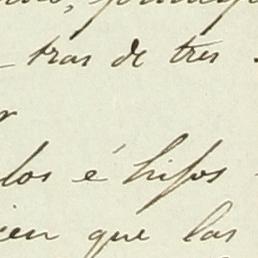 tras de tres
los é hijos
ien que las